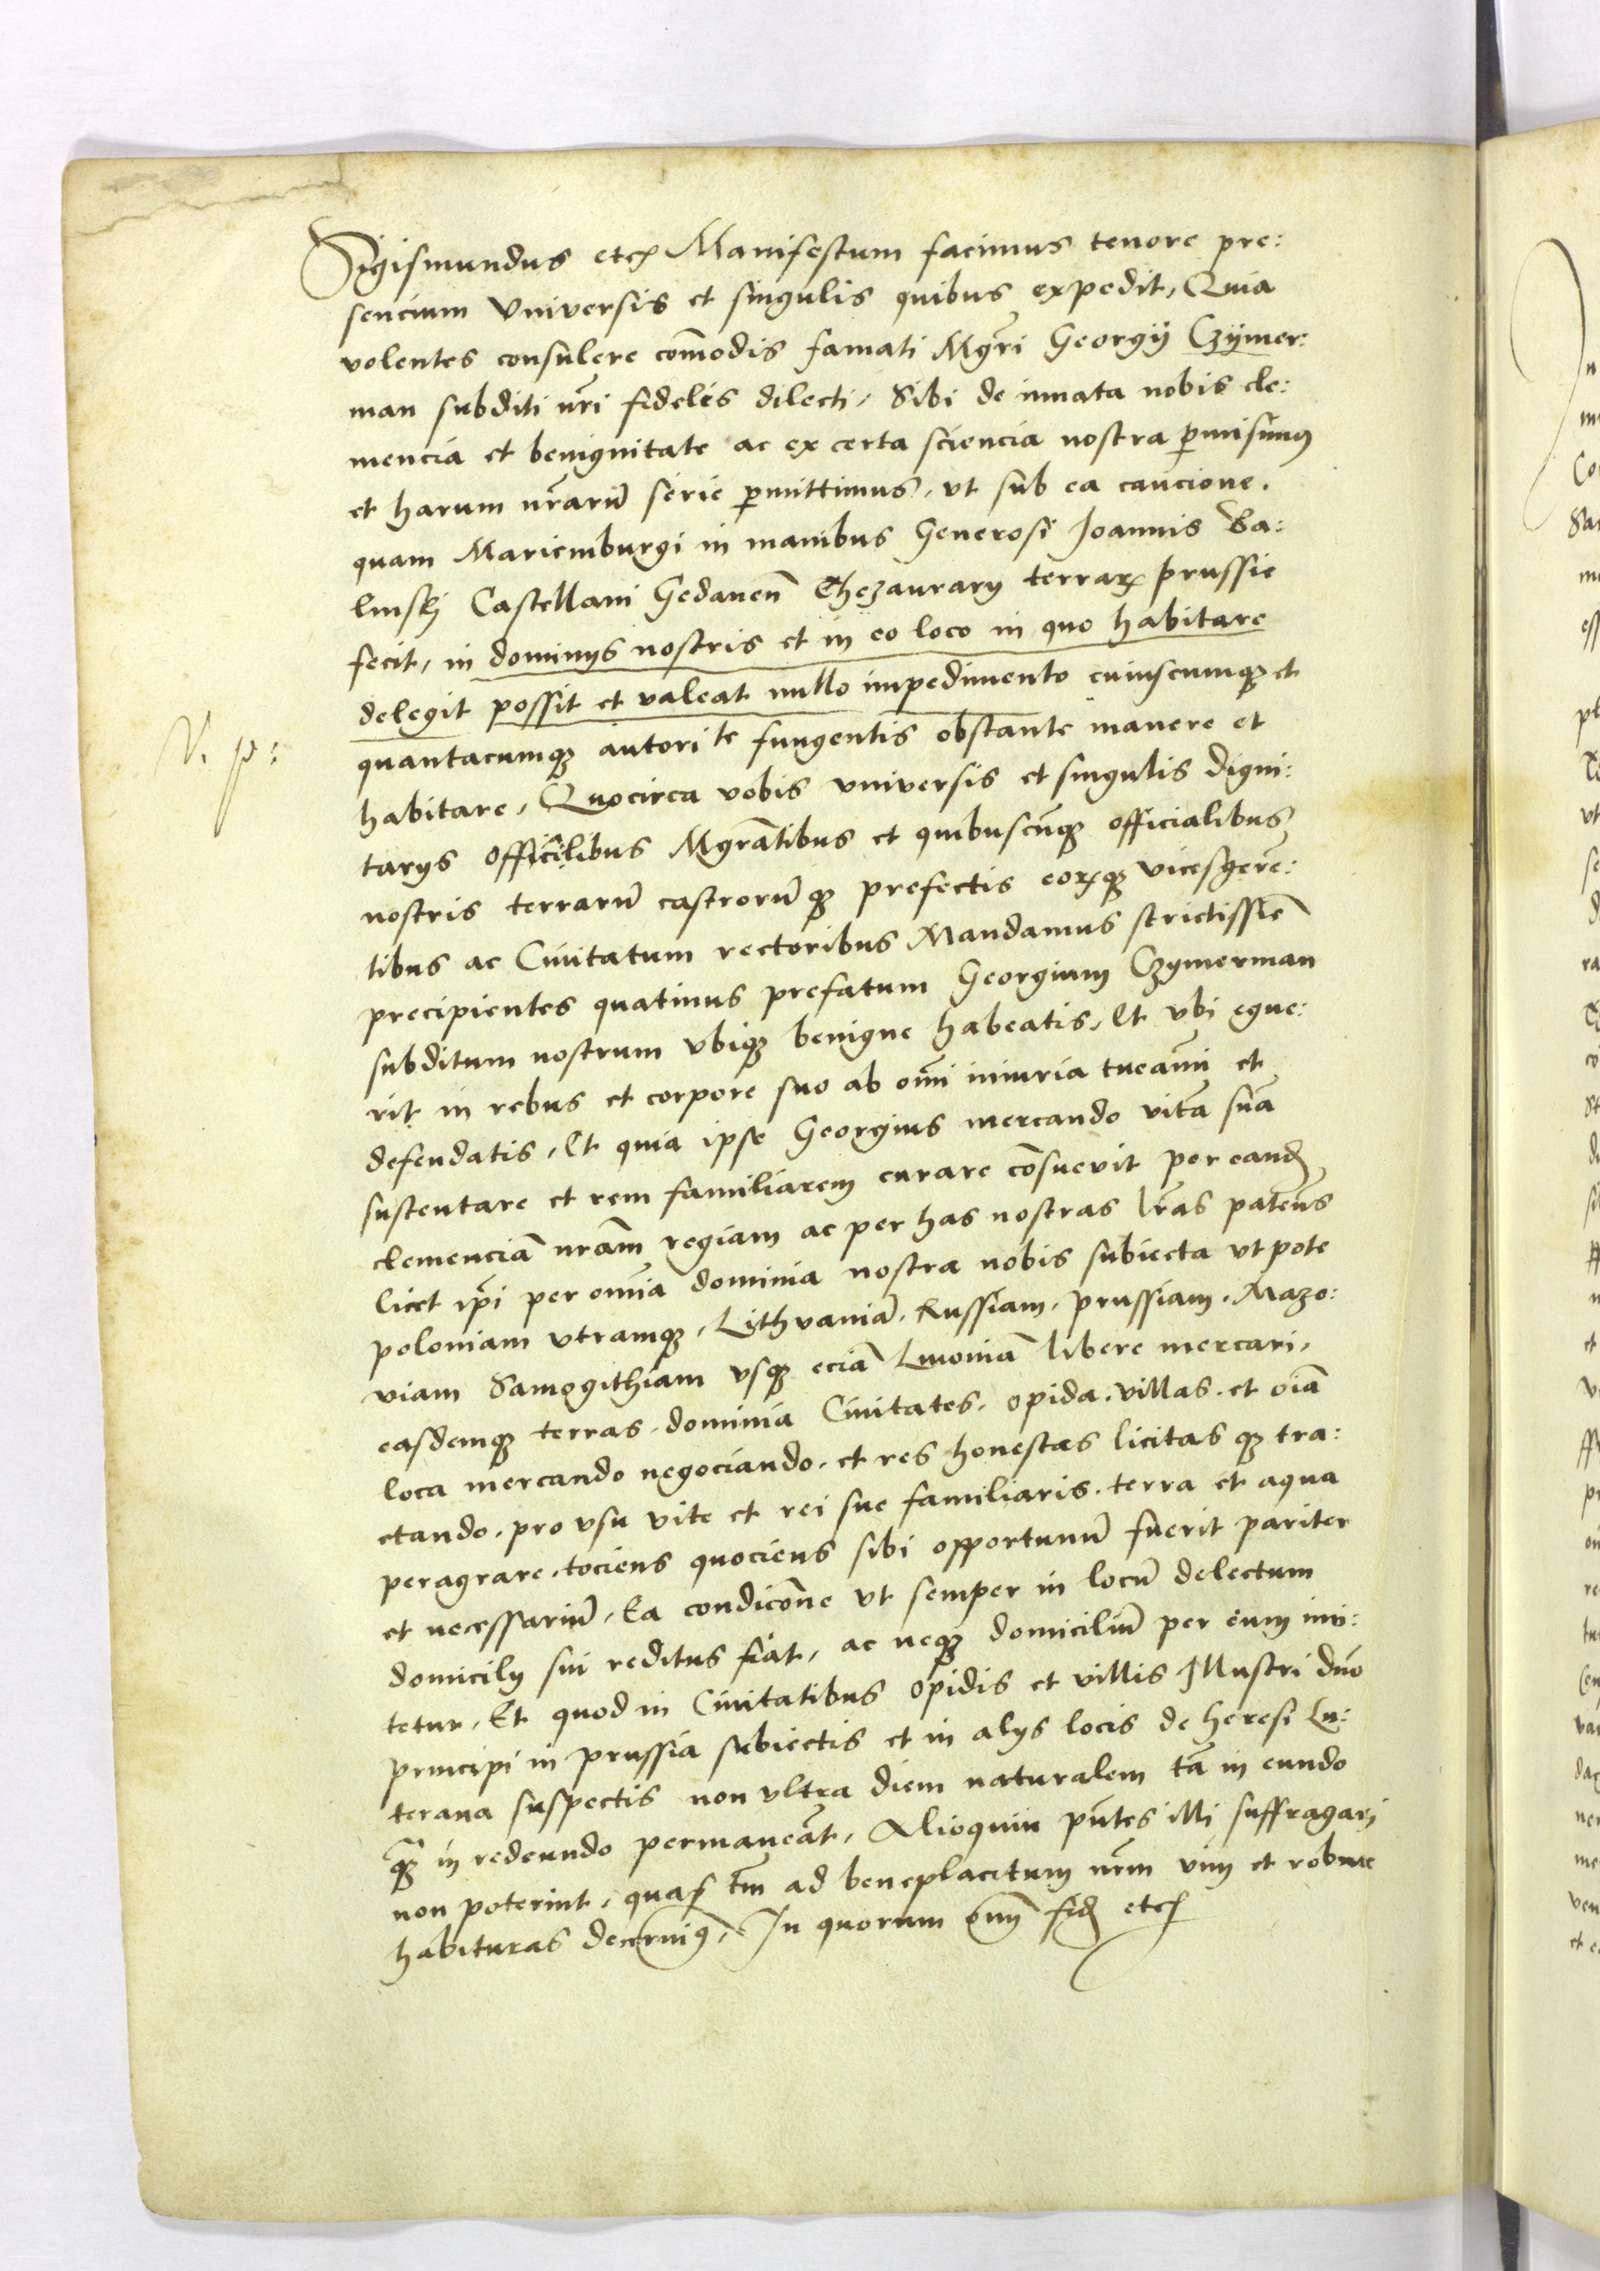 Sigismundus etc Manifestum facimus tenore pre:
sencium Universis et singulis quibus expedit, Quia
volentes consulere com̄odis famati Mgr̄i Georgÿ Czÿmer:
man subditi nr̄i fideles dilecti, Sibi de innata nobis cle:
mencia et benignitate ac ex certa sciencia nostra ꝑmisimus
et harum nr̄arū serie ꝑmittimus, ut sub ea caucione.
quam Mariemburgi in manibus Generosi Joannis Ba:
linskj Castellani Gedaneñ Thezaurarÿ terraꝝ prussie
fecit, in dominÿs nostris et in eo loco in quo habitare
delegit possit et valeat nullo impedimento cuiuscumqꝫ et
V. p:
quantacumqꝫ autorite fungentis obstante manere et
habitare, Quocirca vobis universis et singulis digni:
tarÿs officilibus Mgrātibus et quibuscūqꝫ officialibus
nostris terrarū castrorūqꝫ prefectis eoꝝqꝫ vicesgerē:
tibus ac Civitatum rectoribus Mandamus strictissiē
precipientes quatinus prefatum Georgium Czymerman
subditum nostrum ubiqꝫ benigne habeatis, Et ubi egue:
rit in rebus et corpore suo ab om̄i iniuria tueamini et
defendatis, Et quia ipse Georgius mercando vitā suā
sustentare et rem familiarem curare cōsuevit per eand
clemenciā nrām regiam ac per has nostras lrās patentes
licet ip̄i per om̄ia dominia nostra nobis subiecta ut pote
poloniam utramqꝫ, Lithvaniā, Russiam, prussiam, Mazo:
viam Samogithiam usqꝫ eciā Livoniā libere mercari,
easdemqꝫ terras, dominia Civitates, opida, villas, et oīa
loca mercando negociando, et res honestas licitas qꝫ tra:
ctando, pro usu vite et rei sue familiaris, terra et aqua
peragrare, tociens quociens sibi opportunū fuerit pariter
et necessariū, Ea condicōne ut semper in locū delectum
domicilÿ sui reditus fiat, ac neqꝫ domiciliū per eum mu:
tetur, Et quod in Civitatibus opidis et villis Illustri duo
principi in prussia subiectis et in alÿs locis de heresi Lu:
terana suspectis non ultra diem naturalem tā in eundo
qꝫ in redeundo permaneāt, Alioquin pn̄tes illi suffragari
non poterint, quas tm̄ ad beneplacitum nr̄m vim et robur
habituras decernimꝰ, In quorum om̄ fid etc